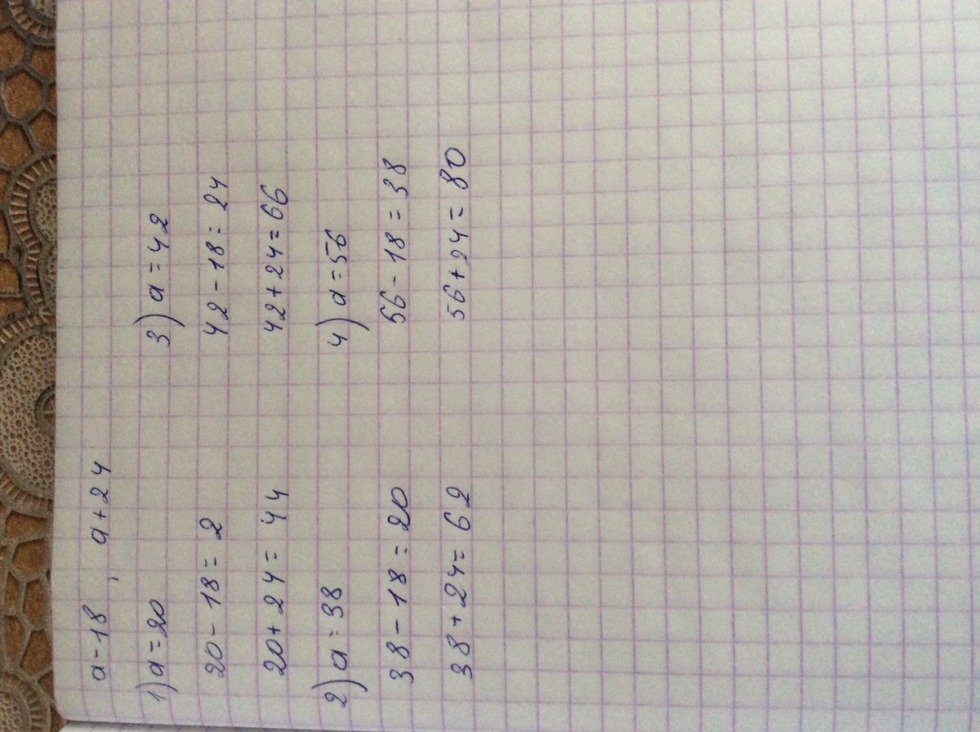 a-18, a+24
1) a=20
20-18=2
20+24=44
2) a=38
38-18=20
38+24=62
3) a=42
42-18=24
42+24=66
4) a=56
56-18=38
56+24=80